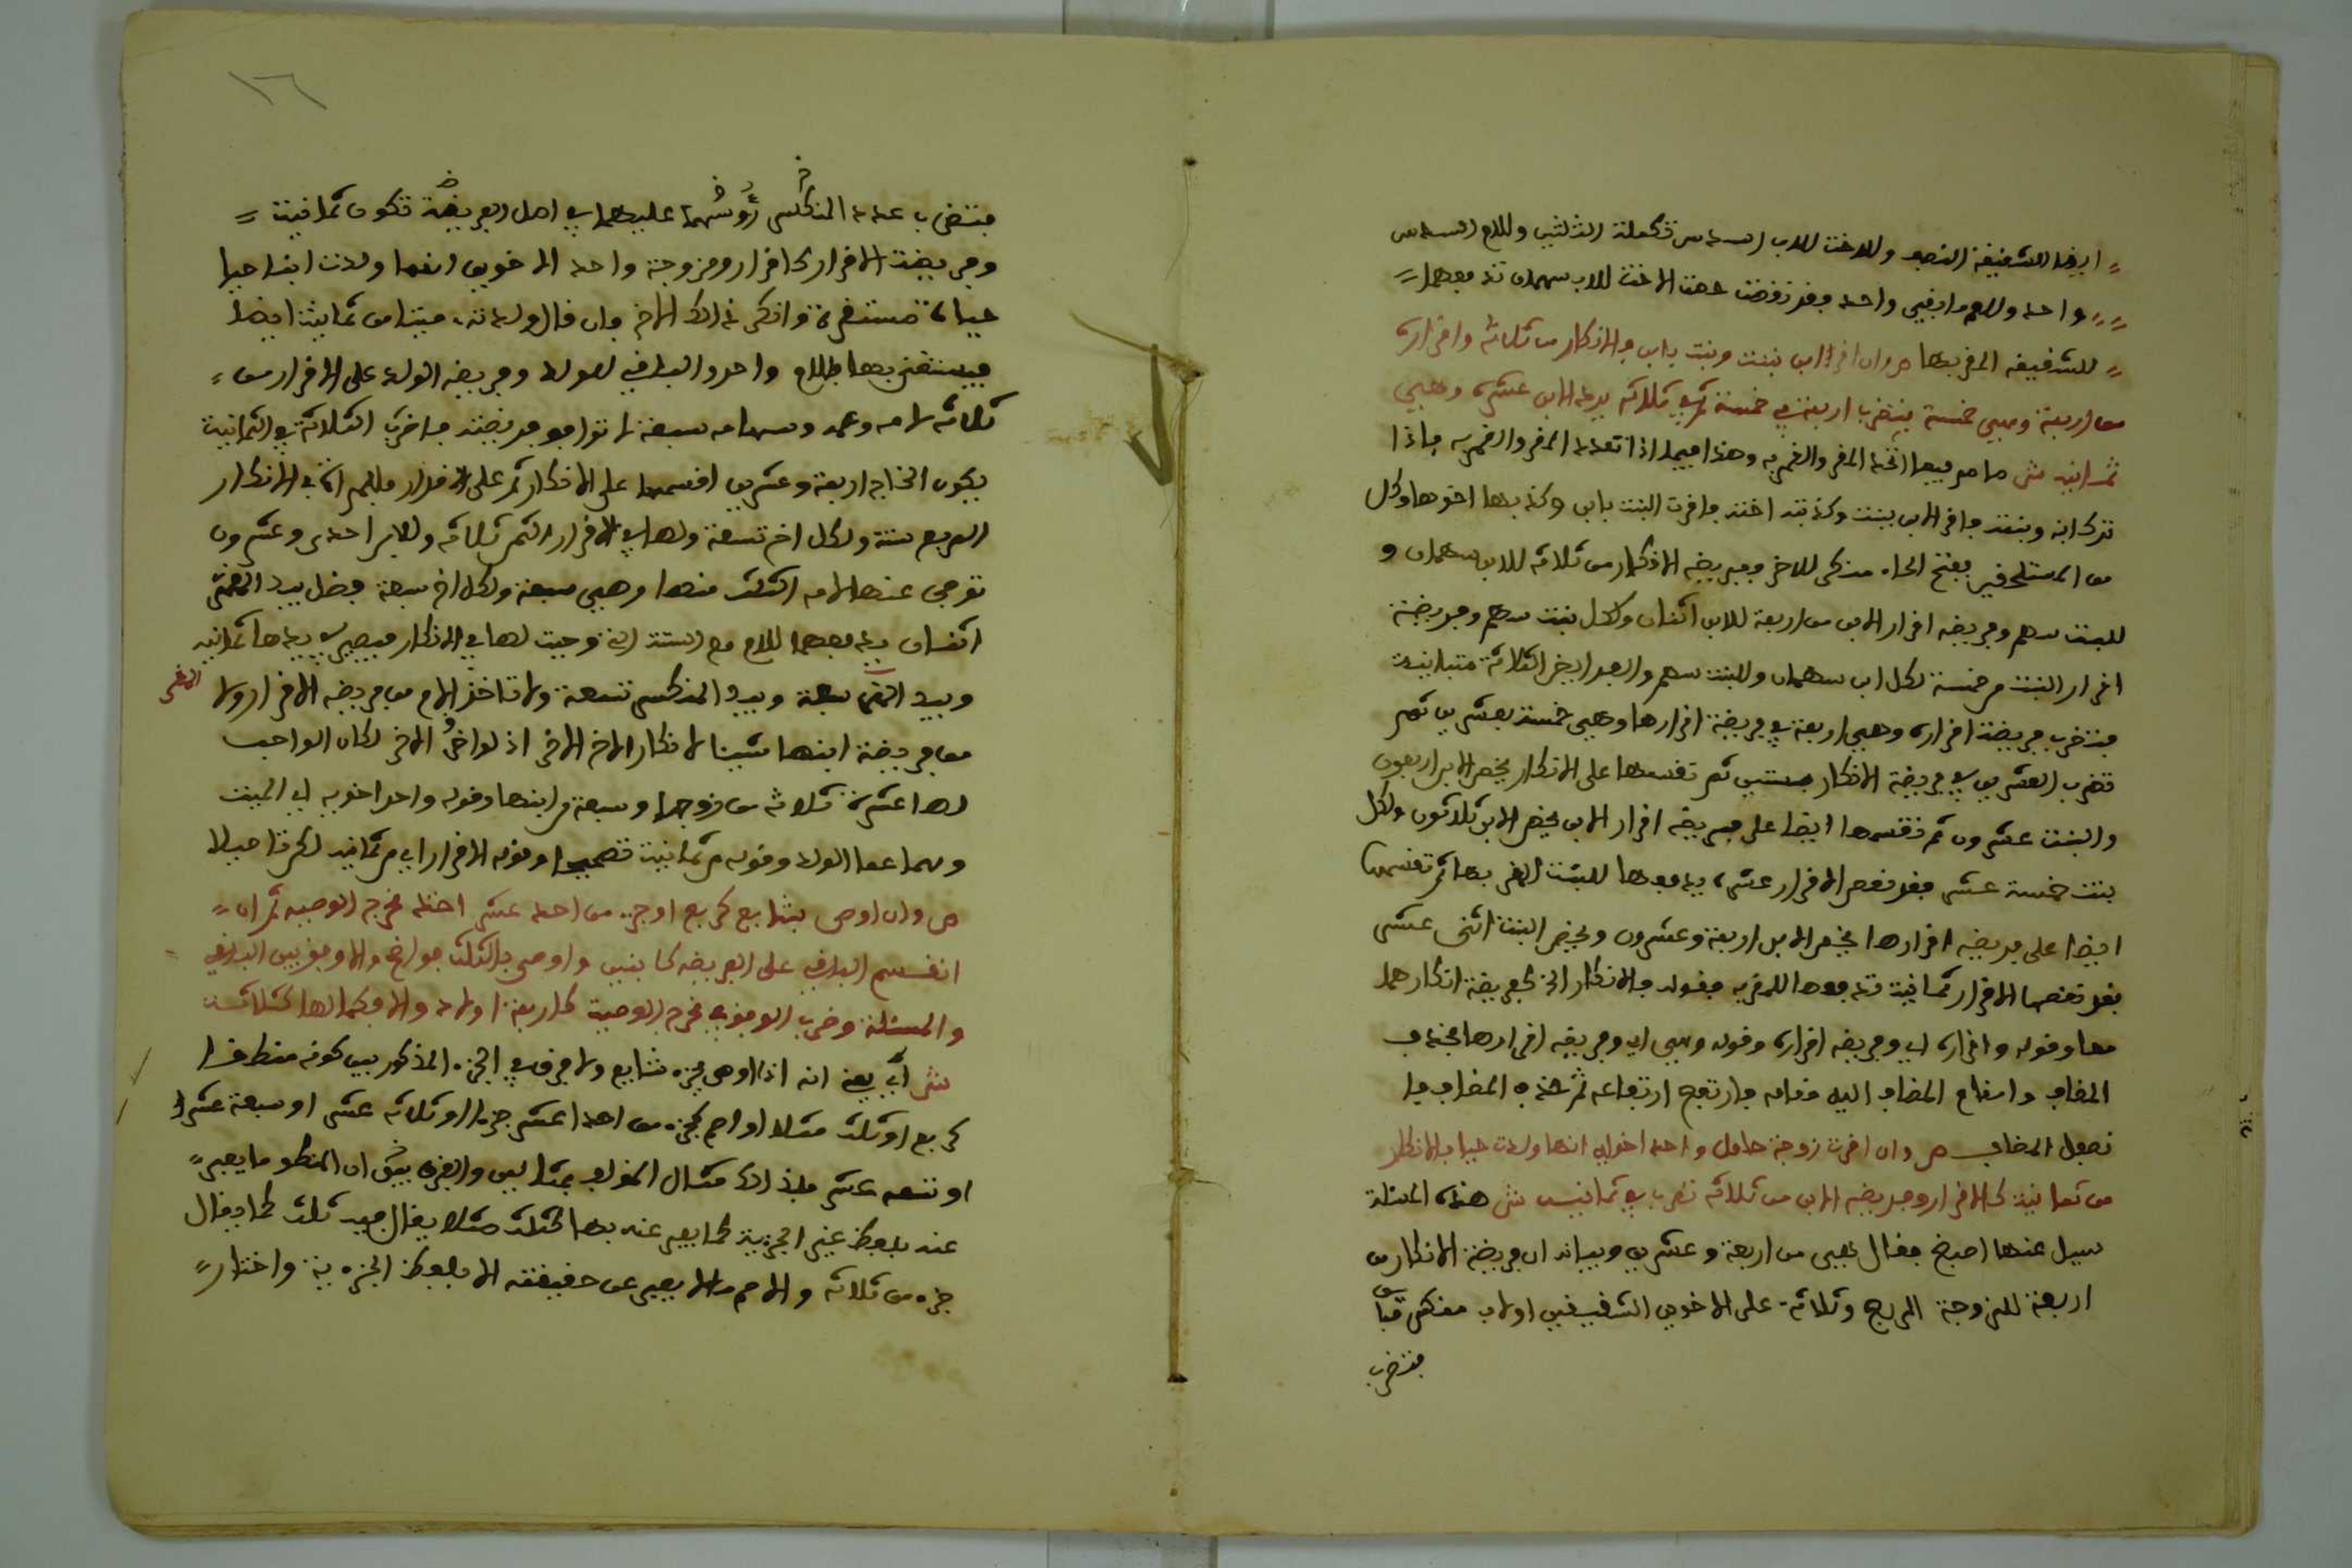 ايضا للشقيقة النصف وللاخت للاب السدس تكملة الثلثين وللام السدس
واحد وللعم ما بقي واحد فقد نقصت حصة الاخت للاب سهمان تدفعهما
للشقيقة المقر بها ص وان اقر ابن ببنت وبنت بابن فالانكار من ثلاثة واقراره
من اربعة وهي خمسة فتضرب اربعة في خمسة ثم في ثلاثة يرد الابن عشرة وهي
ثمانية ش ما مر فيما اتحد المقر والمقر به وهذا فيما اذا تعدد المقر والمقر به فاذا
ترك ابنه وبنته فاقر الابن ببنت وكذبته اخته فاقرت البنت بابن وكذبها اخوها وكل
من المستلحقين بفتح الحاء منكر للاخر ففريضة الانكار من ثلاثة للابن سهمان و
للبنت سهم وفريضة اقرار الابن من اربعة للابن اثنان ولكل بنت سهم وفريضة
اقرار البنت من خمسة لكل ابن سهمان وللبنت سهم والفرايض الثلاثة متباينة
فتضرب فريضة اقراره وهي اربعة في فريضة اقرارها وهي خمسة بعشرين ثم
تضرب العشرين في فريضة الانكار بستين ثم تقسمها على الانكار يخص الابن اربعون
والبنت عشرون ثم تقسمها ايضا على فريضة اقرار الابن يخص الابن ثلاثون ولكل
بنت خمسة عشر فقد نقص الاقرار عشرة يدفعها للبنت المقر بها ثم تقسمها
ايضا على فريضة اقرارها يخص الابن اربعة وعشرون ويخص البنت اثنى عشر
فقد نقصها الاقرار ثمانية تدفعها للمقر به فقوله فالانكار اى ففريضة انكارهما
معا وقوله واقراره اى وفريضة اقراره وقوله وهي اى وفريضة اقرارها فحذف
المضاف واقام المضاف اليه مقامه فارتفع ارتفاعه ثم حذف المضاف
فصل المضاف ص وان اقرت زوجة حامل واحد اخويه انها ولدت حيا فالانكار
من ثمانية كالاقرار وفريضة الابن من ثلاثة تضرب في ثمانية ش هذه المسئلة
سيل عنها اصبغ فقال هي من اربعة وعشرين وبيانه ان فريضة الانكار من
اربعة للزوجة الربع وثلاثة على الاخوين الشقيقين اولاب منكسر
فتضرب
١٦
فتضرب عدد المنكسر رؤسهما عليهما في اصل الفريضة تكون ثمانية
وفريضة الاقرار كاقرار زوجة واحد الاخوين انها ولدت ابنا حيا
حياة مستقرة وانكر ذلك الاخ وان قال ولدته ميتا من ثمانية ايضا
فيستغنى بها للام واحد والباقي للولد وفريضة الولد على الاقرار من
ثلاثة لامه وعمه وسهامه سبعة لا توافق فريضته فاضرب الثلاثة في الثمانية
يكون الخارج اربعة وعشرين اقسمها على الانكار ثم على الاقرار فللمراة في الانكار
الربع ستة ولكل اخ تسعة ولها في الاقرار الثمن ثلاثة وللابن احدى وعشرون
توفي عنها لامه الثلث منها وهي سبعة ولكل اخ سبعة فضل بيد المقر
اثنان يدفعهما للام مع الستة التي وجبت لها في الانكار فيصير في يدها ثمانية
وبيد المقر سبعة وبيد المنكر تسعة ولا تاخذ الام من فريضة الاقرار ولا
المقر
من فريضة ابنها شيئا لانكار الاخ الاخر اذ لو اقر الاخر لكان الواجب
لها عشرة ثلاثة من زوجها وسبعة من ابنها وقوله واحد اخويه اى الميت
وهما عما الولد وقوله من ثمانية تصحيحا وقوله الاقرار اى من ثمانية لكن تاصيلا
ص وان اوصى بشايع كربع او جزء من احد عشر اخذ مخرج الوصية ثم ان
انقسم الباقي على الفريضة كابنين واوصى بالثلث فواضح والا وفق بين الباقي
والمسئلة وضرب الوفق في مخرج الوصية كاربعة اولاد والا فكاملها كثلاثة
ش اي يعني انه اذا اوصى بجزء شايع ولا فرق في الجزء المذكور بين كونه منطقا
كربع او ثلث مثلا او اصم كجزء من احد عشر جزءا او ثلاثة عشر او سبعة عشر
او تسعة عشر فلذلك مثل المؤلف بمثالين والفرق بينهما ان المنطق ما يعبر
عنه بلفظ غير الجزئية كما يعبر عنه بها كثلث مثلا يقال فيه ثلث كما يقال
جزء من ثلاثة والاصم ما لا يعبر عن حقيقته الا بلفظ الجزءية واختار